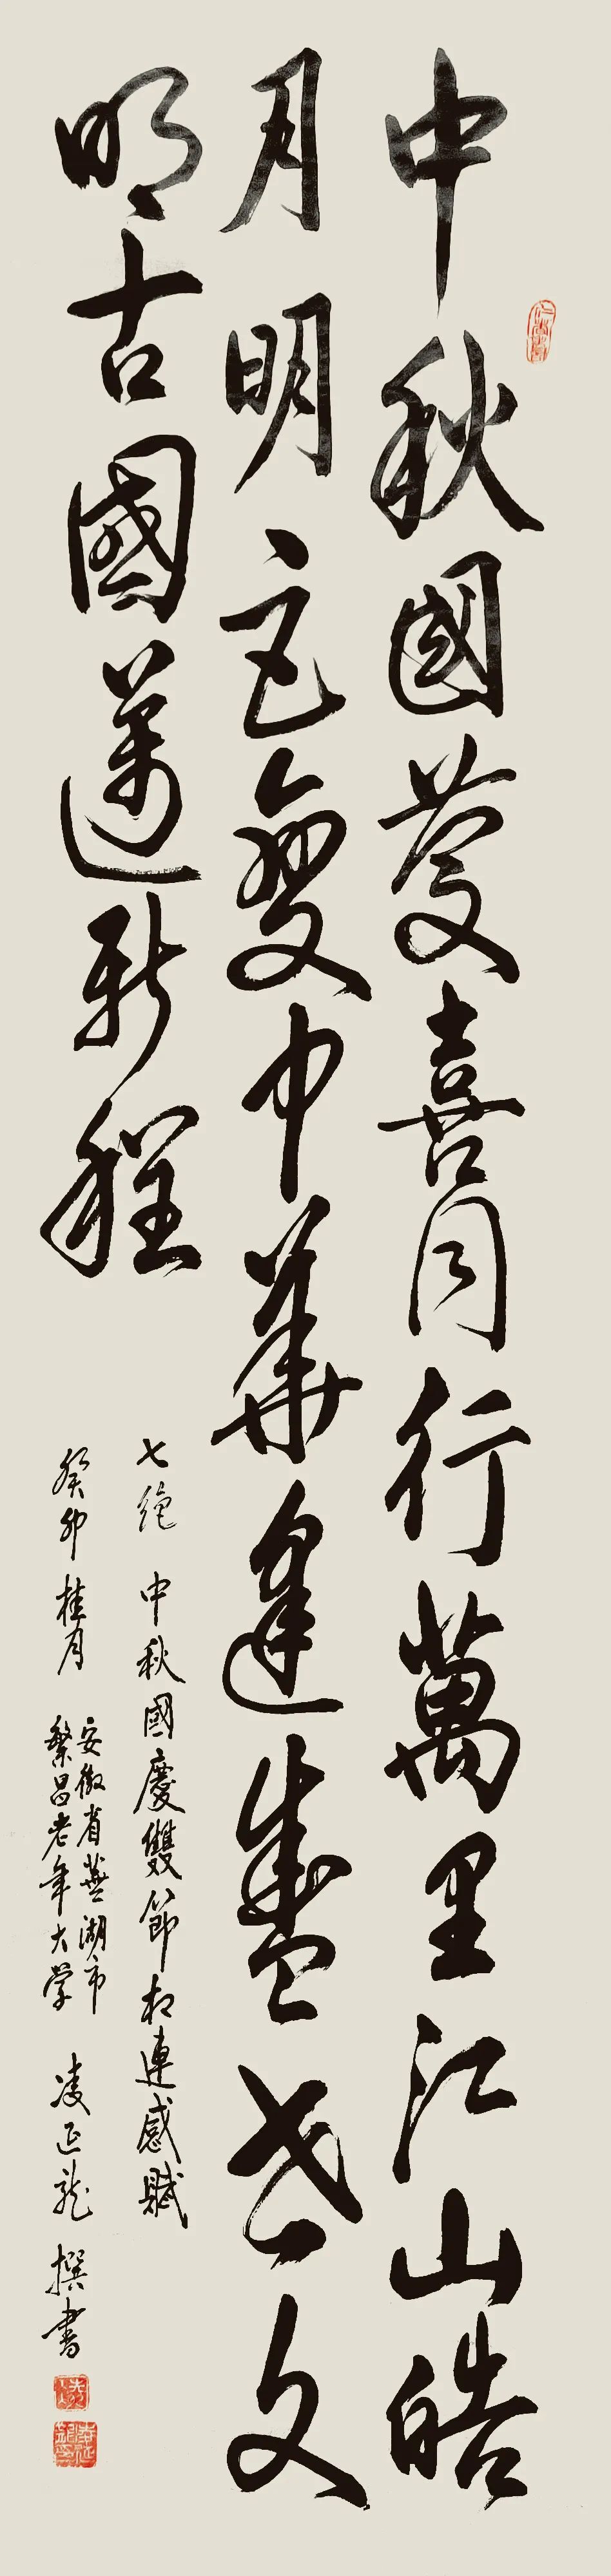 中秋國慶喜同行萬里江山皓
月明巨變中華逢盛世文
明古國邁新程
七絕 中秋國慶雙節相連感賦
癸卯桂月
安徽省蕪湖市
繁昌老年大学
凌延龍 撰書